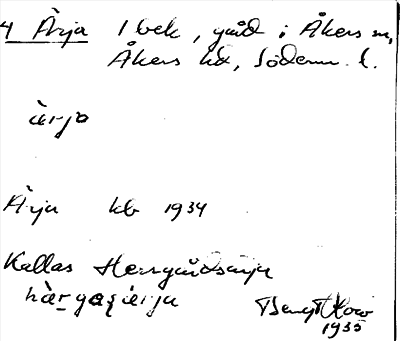 4 Ärja 1 bek, gård i Åkers sn,
Åkers hd, Söderm. l.
ärja
Ärja kb 1934
Kallas Herrgårdsärja
Bengt
1935